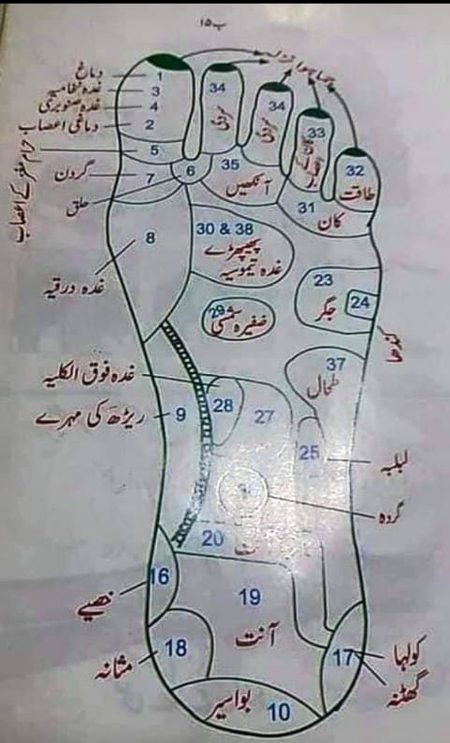 ب ۱۵
دماغ
1
غدہ نخامیہ
3
غدہ صنوبری
4
دماغی اعصاب
2
5
گردن
7
حلق
6
34
34
33
32
طاقت
35
آنکھیں
31
کان
8
غدہ درقیہ
30 & 38
پھیپھڑے
غدہ تیموسیہ
23
جگر
24
کندھا
29
ضفیرہ شمسی
غدہ فوق الکلیہ
28
27
37
طحال
ریڑھ کی مہرے
9
25
لبلبہ
گردہ
20
آنت
16
خصیے
19
آنت
18
مثانہ
17
کولہا
گھٹنہ
بواسیر
10